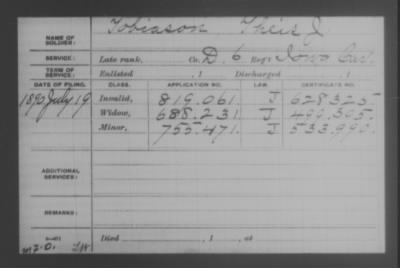 NAME OF SOLDIER: Tobiason, Their J
SERVICE: Late rank, Co. D. 6 Reg't Iowa Cav.
TERM OF SERVICE: Enlisted , 1 Discharged , 1
DATE OF FILING. CLASS. APPLICATION NO. LAW. CERTIFICATE NO.
1890 July 19 Invalid, 819.061. J 628325.
Widow, 688.231. J 499.595.
Minor, 755.471. J 533.990.
ADDITIONAL SERVICES:
REMARKS:
Died , 1 , at